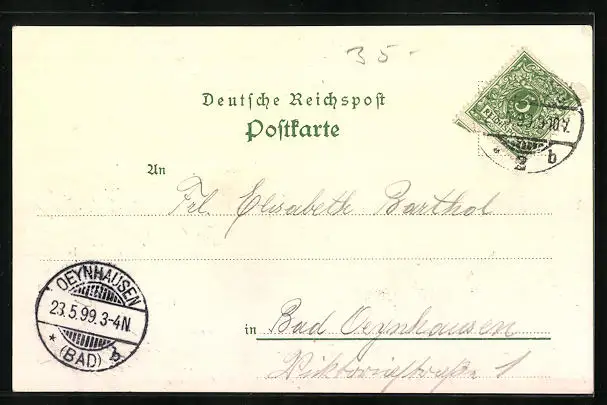 35-
Deutsche Reichspost
Postkarte
5
2 b
An
Frl. Elisabeth Barthol
OEYNHAUSEN
23.5.99.3-4N
* (BAD) b
in Bad Oeynhausen
Viktoriastraße 1